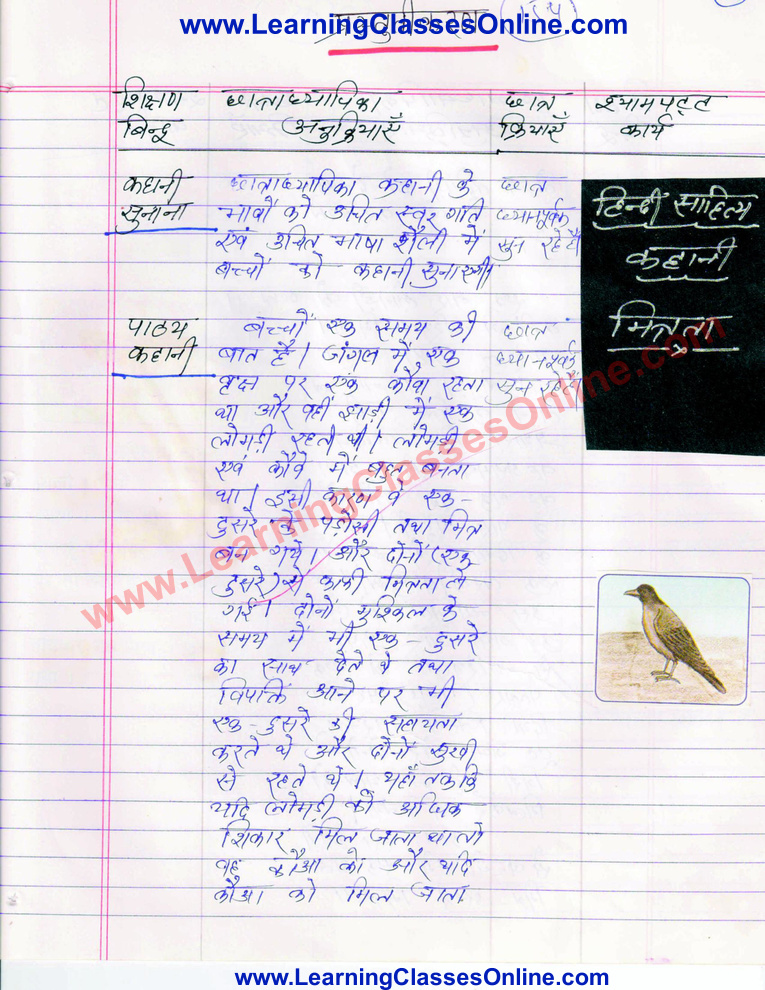 www.LearningClassesOnline.com
प्रस्तुतीकरण
शिक्षण छात्राध्यापिका छात्र श्यामपट्ट
बिन्दू अनुक्रियाएँ क्रियाएँ कार्य
कहानी छात्राध्यापिका कहानी के छात्र
सुनाना भावों को उचित स्वर गति ध्यानपूर्वक
एवं उचित भाषा शैली में सुन रहे हैं
बच्चों को कहानी सुनाएगी।
हिन्दी साहित्य
कहानी
मित्रता
पाठ्य बच्चों एक समय की छात्र
कहानी बात है। जंगल में एक ध्यानपूर्वक
वृक्ष पर एक कौवा रहता सुन रहे हैं
था और वहीं झाड़ी में एक
लोमड़ी रहती थी। लोमड़ी
एवं कौवे में बहुत बनता
था। इसी कारण वे एक-
दुसरे के पड़ोसी तथा मित्र
बन गये। और दोनों (एक
दुसरे) से काफी मित्रता हो
गई। दोनों मुश्किल के
समय में भी एक-दुसरे
का साथ देते थे तथा
विपत्ति आने पर भी
एक-दुसरे की सहायता
करते थे और दोनों सुखी
से रहते थे। यहाँ तक कि
यदि लोमड़ी को अधिक
शिकार मिल जाता था तो
वह कौआ को और यदि
कौआ को मिल जाता
www.LearningClassesOnline.com
www.LearningClassesOnline.com